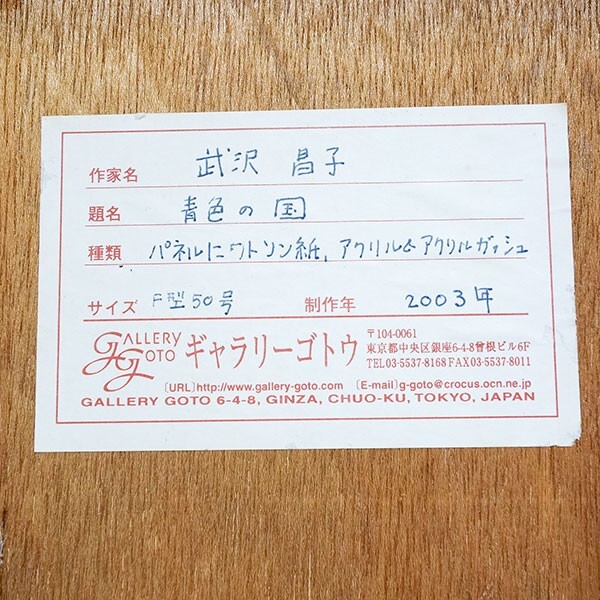 作家名 武沢 昌子
題名 青色の国
種類 パネルにワトソン紙, アクリル&アクリルガッシュ
サイズ F型50号 制作年 2003年
GALLERY GOTO ギャラリーゴトウ
〒104-0061
東京都中央区銀座6-4-8曽根ビル6F
TEL03-5537-8168 FAX03-5537-8011
〔URL〕http://www.gallery-goto.com 〔E-mail〕g-goto@crocus.ocn.ne.jp
GALLERY GOTO 6-4-8, GINZA, CHUO-KU, TOKYO, JAPAN